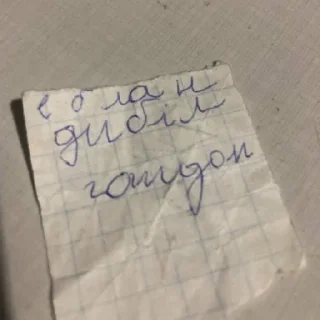 еблан
дибіл
гандон